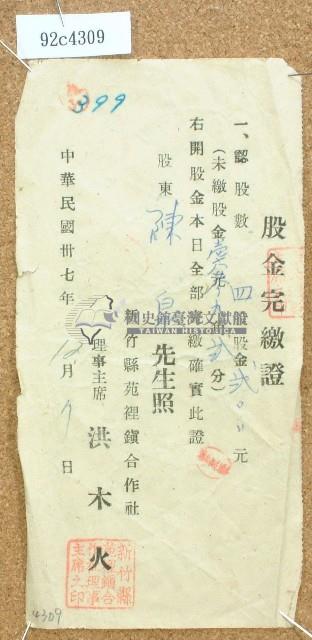 92c4309
399
股金完繳證
一、認股數 四 股金 貳〇〇 元
(未繳股金 元 分)
右開股金本日全部繳確實此證
股東 陳 先生照
新竹縣苑裡鎮合作社
理事主席 洪木火
中華民國卅七年 月 日
新竹縣
苑裡鎮合
作社理事
主席之印
史館臺灣文獻館
TAIWAN HISTORICA
4309